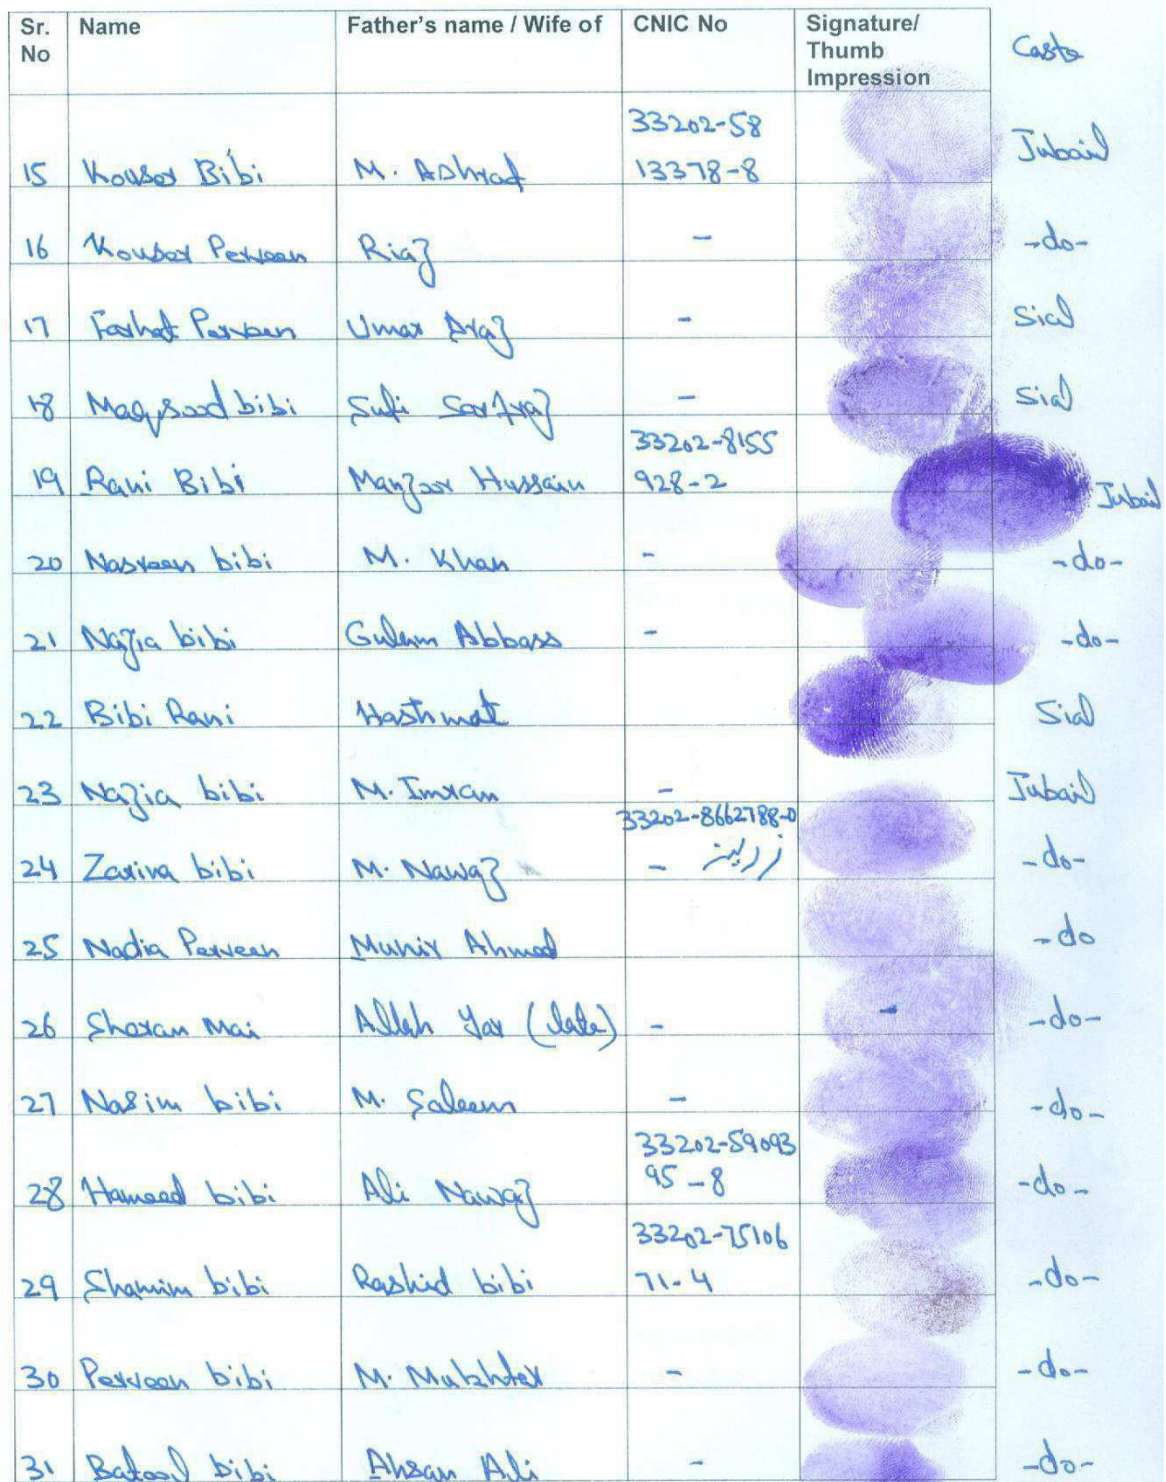 Sr. No Name Father's name / Wife of CNIC No Signature/ Thumb Impression Caste
15 Kouser Bibi M. Ashraf 33202-58 13378-8 Jubail
16 Kouser Perveen Riaz - -do-
17 Farhat Parveen Umar Draz - Sial
18 Maqsood bibi Sufi Sarfraz - Sial
19 Rani Bibi Manzoor Hussain 33202-8155 928-2 Jubail
20 Nasreen bibi M. Khan - -do-
21 Nazia bibi Gulam Abbass - -do-
22 Bibi Rani Hashmat Sial
23 Nazia bibi M. Imran - Jubail
24 Zarina bibi M. Nawaz 33202-8662788-0 - -do-
25 Nadia Perveen Munir Ahmad -do
26 Sharan Mai Allah Yar (late) - -do-
27 Nasim bibi M. Saleem - -do-
28 Hameed bibi Ali Nawaz 33202-59093 95-8 -do-
29 Shamim bibi Rashid bibi 33202-75106 71-4 -do-
30 Perveen bibi M. Mukhter - -do-
31 Batool bibi Ahsan Ali - -do-